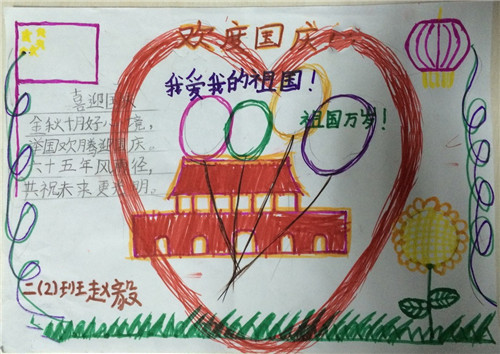 欢度国庆
我爱我的祖国！
祖国万岁！
喜迎国庆
金秋十月好心境，
举国欢腾迎国庆。
六十五年风雨径，
共祝未来更光明。
二(2)班赵毅